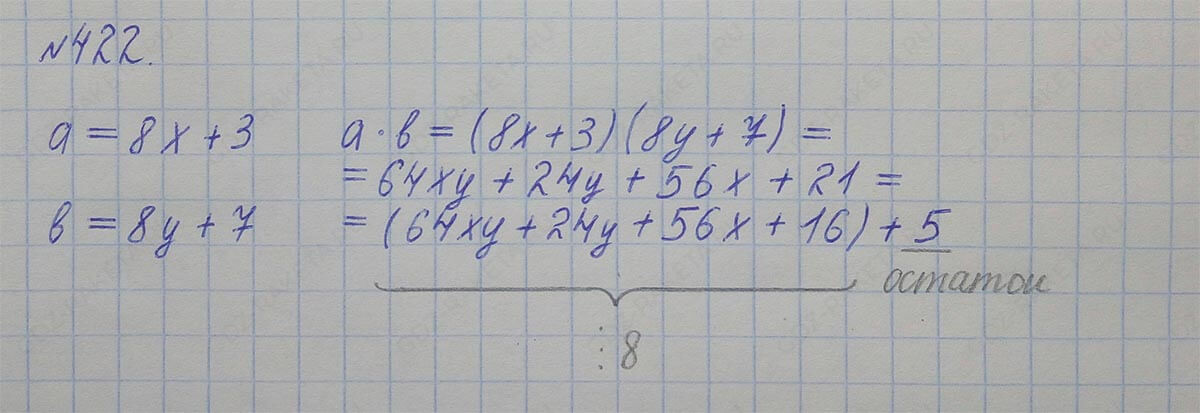 №422.
a = 8x + 3
a · b = (8x + 3)(8y + 7) =
= 64xy + 24y + 56x + 21 =
b = 8y + 7
= (64xy + 24y + 56x + 16) + 5
остаток
⋮ 8